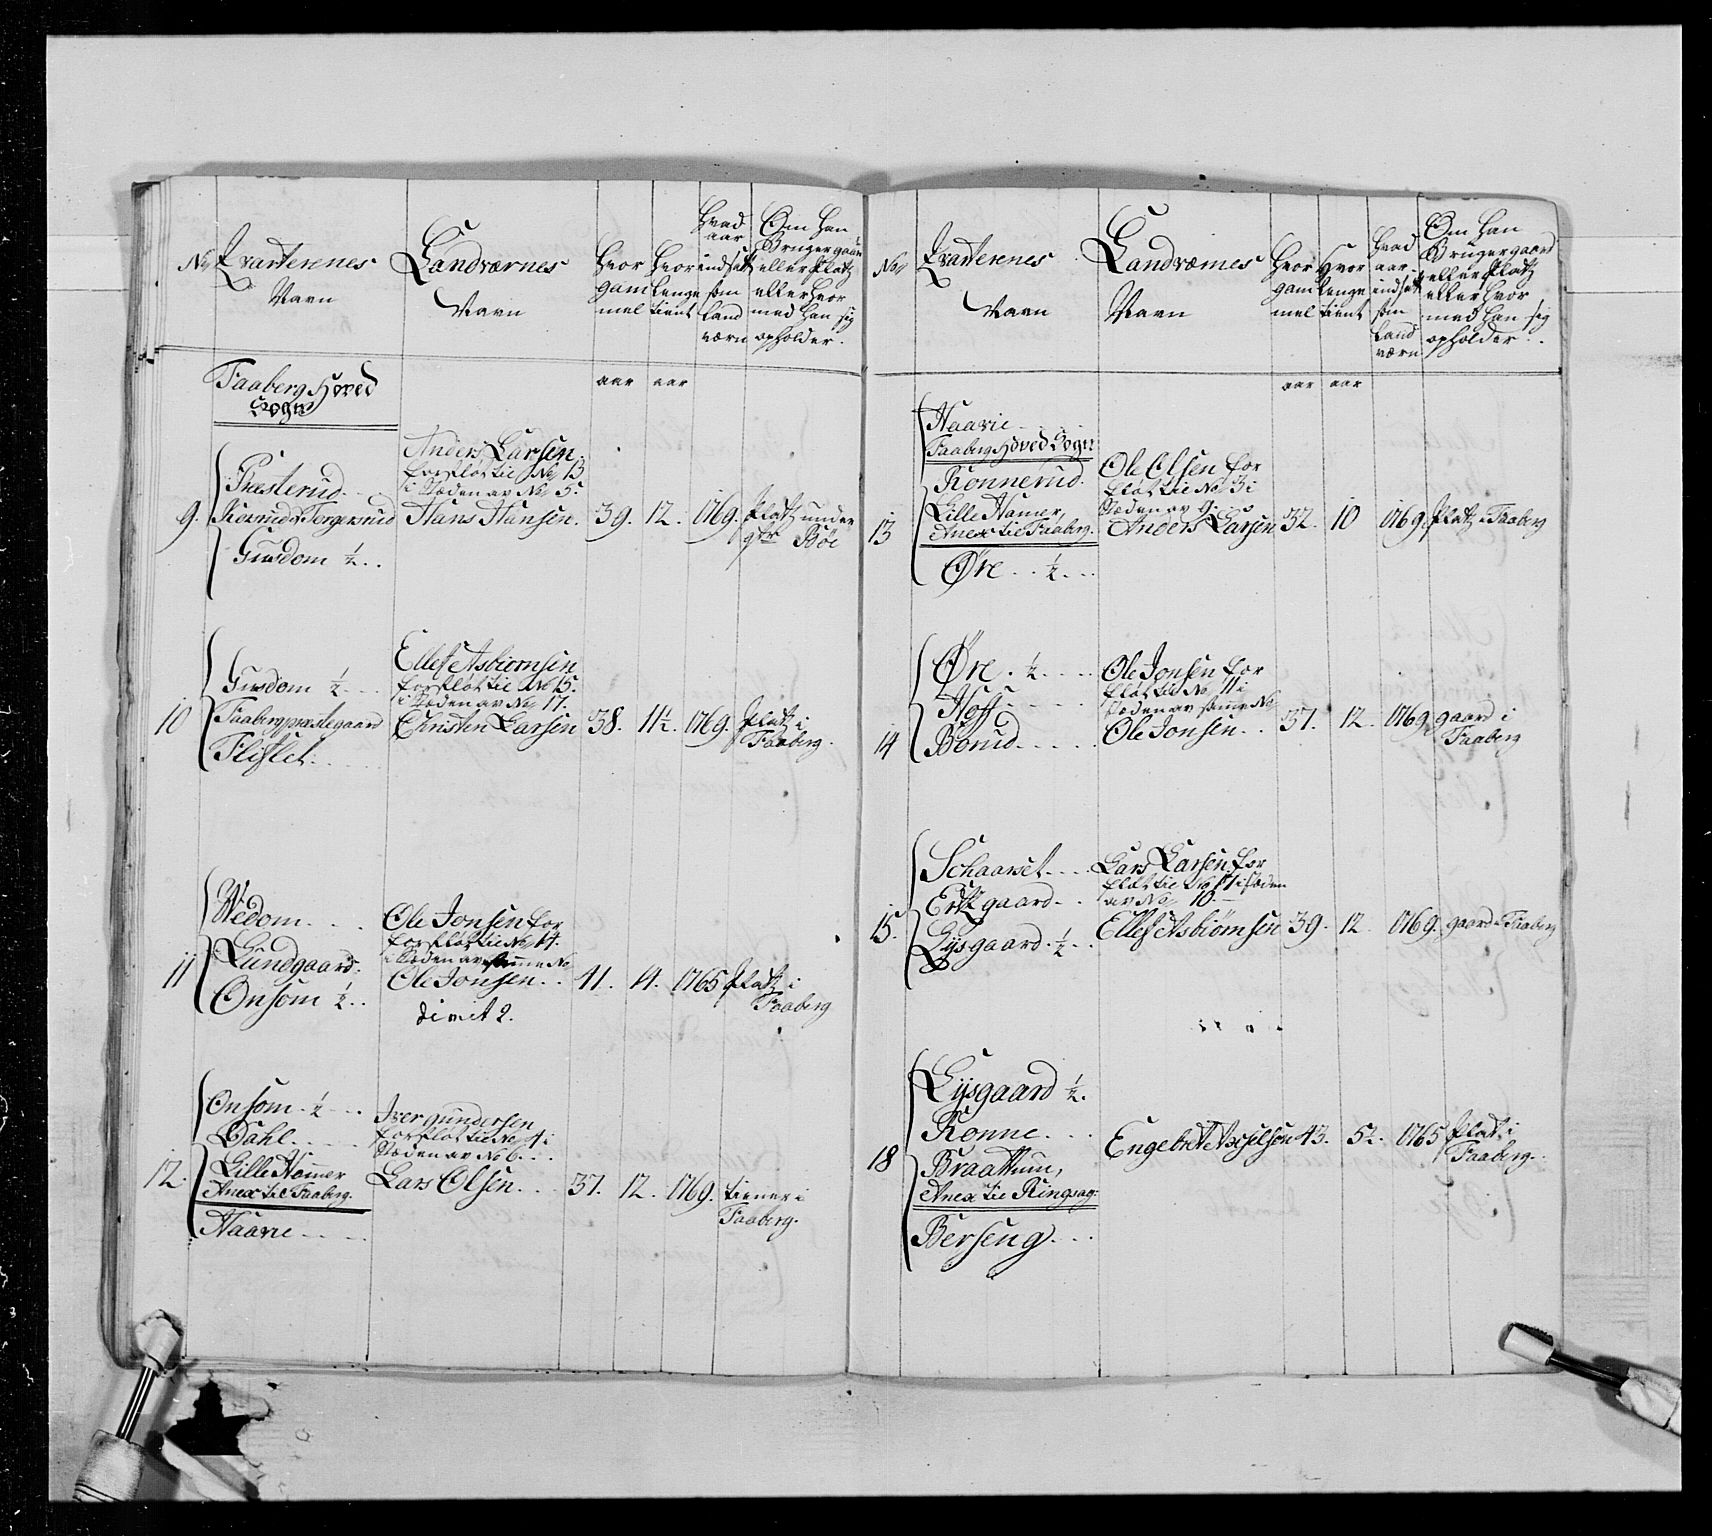 No
Qvarterenes
Navn
Landværnes
Navn
Hvor
gam
mel
Hvor
lenge
tient
Hvad
aar
indsatt
som
Land
værn
Om han
Bruger gaard
eller Platz
eller hvor
med han sig
opholder.
aar aar
Faaberg Hoved
Sogn
9.
Presterud
Kiersrud & Torgersrud
Gusdom ½
Anders Larsen
forfløt til No 13
i Stæden av No 5.
Hans Hansen. 39. 12. 1769. Platz under
gtr Böe
10
Gusdom ½
Faaberg præstegaard
Flistet
Ellef Asbiørnsen
forfløt til No 15.
i Stæden av No 17.
Christen Larsen 38. 11½. 1769. Platz i
Faaberg.
11
Wedom
Lundgaard
Onsom ½
Ole Jonsen for
forfløt til No 14.
i Stæden av samme No
Ole Jonsen 41. 14. 1765 Platz i
Faaberg
dimit 2.
12.
Onsom ½
Dahl
Lille Hamer
Anex til Faaberg.
Haave
Iver Gundersen
forfløt til No 4 i
Stæden av No 6.
Lars Olsen 37. 12. 1769. tiener i
Faaberg.
No
Qvarterenes
Navn
Landværnes
Navn
Hvor
gam
mel
Hvor
lenge
tient
Hvad
aar
indsatt
som
Land
værn
Om han
Bruger gaard
eller Platz
eller hvor
med han sig
opholder.
aar aar
13
Haave
Faaberg Hoved Sogn
Ronnerud
Lille Hamer,
Anex til Faaberg.
Øre ½
Ole Olsen for
fløt til No 3 i
Stæden av 9.
Anders Larsen 32. 10 1769. Platz i Faaberg
14
Øre ½
Hoff
Borud
Ole Jonsen for
fløt til No 11 i
Stæden av samme No
Ole Jonsen 37. 12. 1769 gaard i
Faaberg
15.
Schaarset
gaard
Lysgaard ½
Lars Larsen for
fløt til No 17 i Stæden
av No 10.
Ellef Asbiørnsen 39. 12. 1769. gaard i Faaberg
18
Lysgaard ½.
Ronne
Braattum,
Anex til Ringsag.
Berseng
Engebret Axselsøn 43. 52. 1765 Platz i
Faaberg.